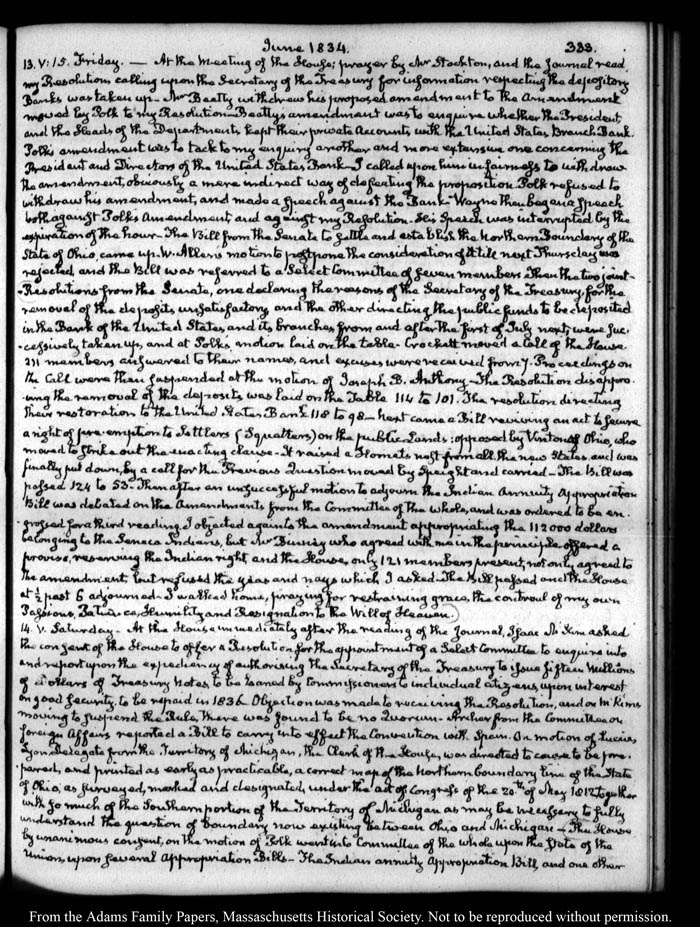 June 1834. 333.
13. V:15. Friday. — At the Meeting of the House; prayer by Mr Stockton, and the Journal read,
my Resolution calling upon the Secretary of the Treasury for information respecting the depository
Banks was taken up— Mr Beatty withdrew his proposed amendment to the Amendment
moved by Polk to my Resolution— Beatty's amendment was to enquire whether the President
and the Heads of the Departments kept their private Accounts with the United States Branch Bank.
Polk's amendment was to tack to my enquiry another and more extensive one concerning the
President and Directors of the United States Bank— I called upon him in fairness to withdraw
the amendment, obviously a mere indirect way of defeating the proposition. Polk refused to
withdraw his amendment, and made a Speech against the Bank— Wayne then began a Speech
both against Polk's Amendment and against my Resolution— His Speech was interrupted by the
expiration of the hour— The Bill from the Senate to settle and establish the Northern Boundary of the
State of Ohio, came up. W. Allen's motion to postpone the consideration of it till next Thursday was
rejected, and the Bill was referred to a Select Committee of seven members. Then the two joint-
-Resolutions from the Senate, one declaring the reasons of the Secretary of the Treasury, for the
removal of the deposits, unsatisfactory, and the other directing the public funds to be deposited
in the Bank of the United States, and its branches, from and after the first of July next, were suc-
-cessively taken up, and at Polk's motion laid on the table— Crockett moved a Call of the House
211 members answered to their names, and excuses were received from 7. Proceedings on
the Call were then suspended at the motion of Joseph B. Anthony— The Resolution disappro-
-ving the removal of the deposits was laid on the Table 114 to 101. The resolution directing
their restoration to the United States Bank 118 to 98— Next came a Bill reviving an act to secure
a right of pre-emption to Settlers (Squatters) on the public Lands: opposed by Vinton of Ohio, who
moved to strike out the enacting clause— It raised a Hornets nest from all the new States, and was
finally put down, by a call for the Previous Question moved by Speight and carried— The Bill was
passed 124 to 53— Then after an unsuccessful motion to adjourn the Indian Annuity Appropriation
Bill was debated on the Amendments from the Committee of the whole, and was ordered to be en-
-grossed for a third reading. I objected against the amendment appropriating the 112 000 dollars
belonging to the Seneca Indians, but Mr Binney who agreed with me in the principle offered a
proviso, reserving the Indian right, and the House, only 121 members present, not only agreed to
the amendment but refused the yeas and nays which I asked. The Bill passed and the House
at ½ past 6 adjourned— I walked home, praying for restraining grace, the controul of my own
Passions, Patience, Humility and Resignation to the Will of Heaven.
14. V. Saturday— At the House immediately after the reading of the Journal, Isaac McKim asked
the consent of the House to offer a Resolution for the appointment of a Select Committee to enquire into
and report upon the expediency of authorising the Secretary of the Treasury to issue fifteen Millions
of Dollars of Treasury Notes to be loaned by Commissioners to individual citizens upon interest
on good Security, to be repaid in 1836. Objection was made to receiving the Resolution, and on McKim's
moving to suspend the Rule, there was found to be no Quorum— Archer from the Committee on
foreign Affairs reported a Bill to carry into effect the Convention with Spain. On motion of Lucius
Lyon, Delegate from the Territory of Michigan, the Clerk of the House, was directed to cause to be pre-
-pared, and printed as early as practicable, a correct map of the Northern boundary line of the State
of Ohio, as surveyed, marked and designated, under the act of Congress of the 20th of May 1812 together
with so much of the Southern portion of the Territory of Michigan as may be necessary to fully
understand the question of boundary now existing between Ohio and Michigan— The House
by unanimous consent, on the motion of Polk went into Committee of the whole upon the State of the
Union, upon several Appropriation Bills— The Indian annuity Appropriation Bill, and one other
From the Adams Family Papers, Massachusetts Historical Society. Not to be reproduced without permission.